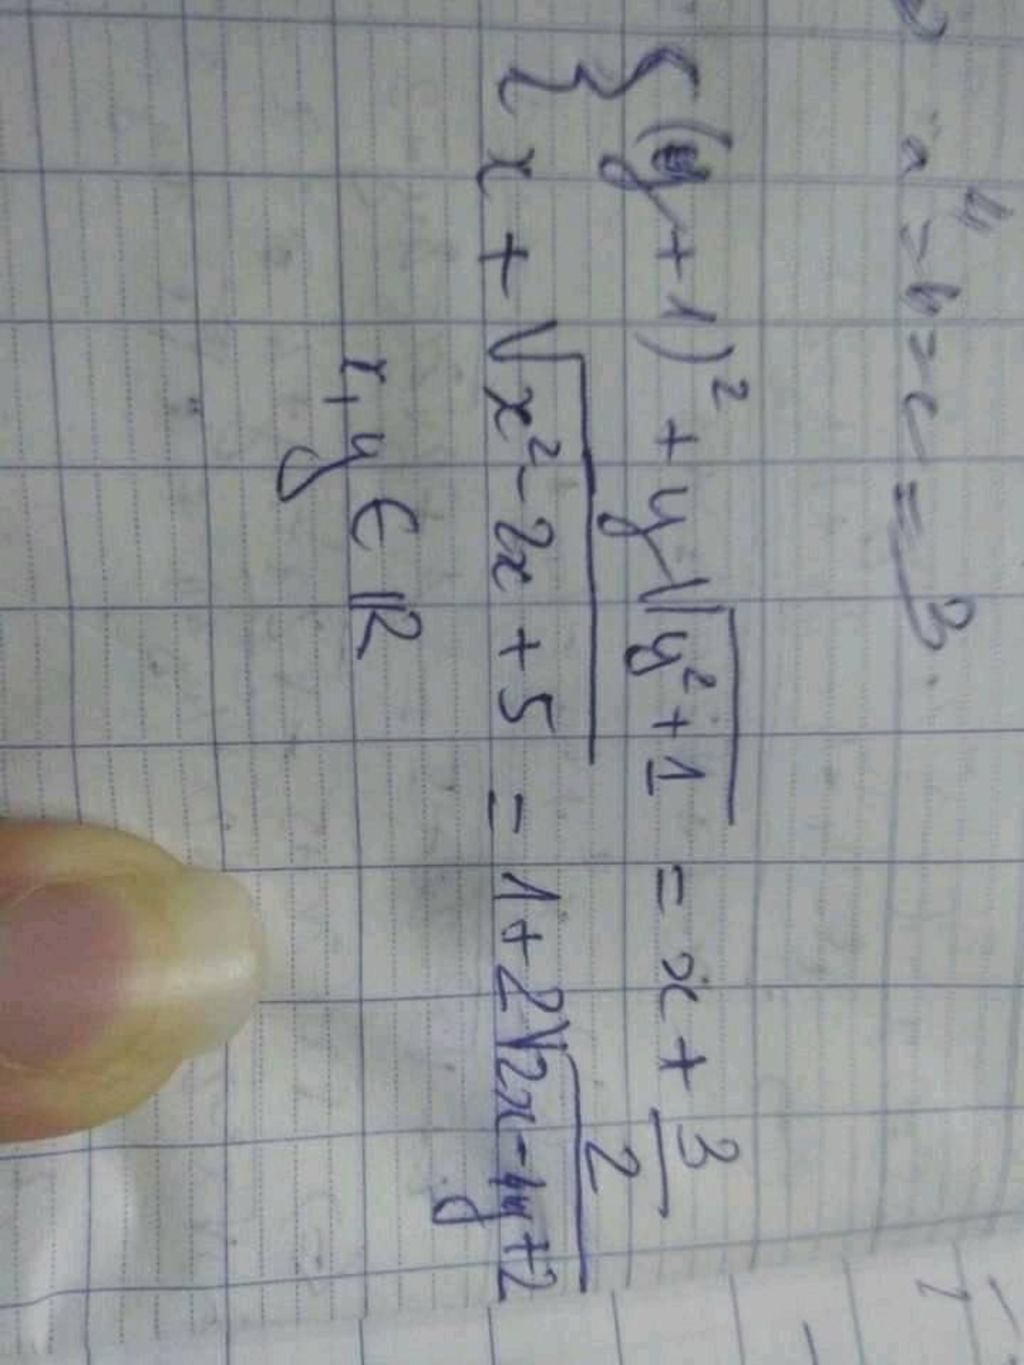 a = b = c = 3.
{ (y+1)² + y√(y²+1) = x + 3/2
{ x + √(x²-2x+5) = 1+2√(2x-4y+2)
x, y ∈ ℝ